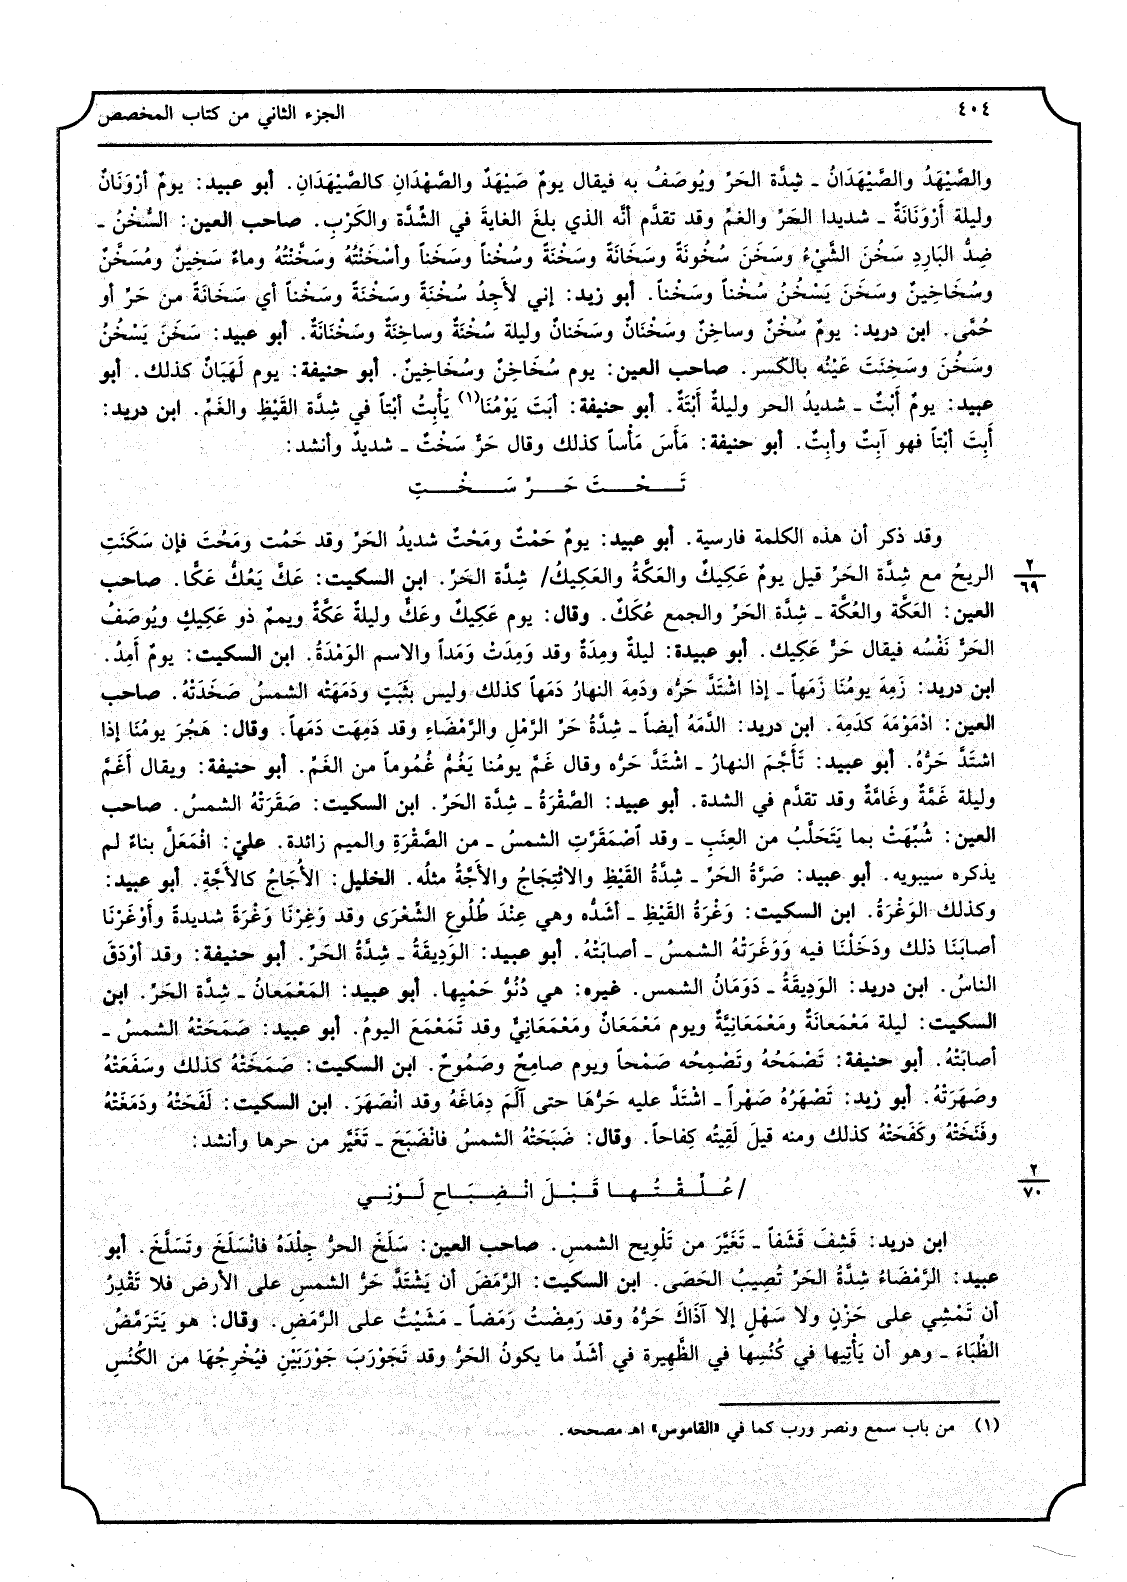 ٤٠٤
الجزء الثاني من كتاب المخصص
والصَّيْهَدُ والصَّيْهَدَانُ ـ شِدَّة الحَرِّ ويُوصَفُ به فيقال يومٌ صَيْهَدٌ والصَّهْدَانِ كالصَّيْهَدَانِ. أبو عبيد: يومٌ أرْوَنَانٌ
وليلة أَرْوَنَانَةٌ ـ شديدا الحَرِّ والغمِّ وقد تقدَّم أنَّه الذي بلغَ الغايةَ في الشِّدَّة والكَرْبِ. صاحب العين: السُّخْنُ ـ
ضِدُّ البَارِدِ سَخُنَ الشَّيْءُ وسَخَنَ سُخُونةً وسَخَانَةً وسَخْنَةً وسُخْناً وسَخَناً وأسْخَنْتُهُ وسَخَّنْتُهُ وماءٌ سَخِينٌ ومُسَخَّنٌ
وسُخَاخِينٌ وسَخَنَ يَسْخُنُ سُخْناً وسَخْناً. أبو زيد: إني لأجِدُ سُخْنَةً وسَخْنَةً وسَخْناً أي سَخَانَةً من حَرِّ أو
حُمَّى. ابن دريد: يومٌ سُخْنٌ وساخِنٌ وسَخْنَانٌ وسَخَنانٌ وليلة سُخْنَةٌ وساخِنَةٌ وسَخْنَانَةٌ. أبو عبيد: سَخَنَ يَسْخُنُ
وسَخُنَ وسَخِنَتَ عَيْنُه بالكَسر. صاحب العين: يوم سُخَاخِنٌ وسُخَاخِينٌ. أبو حنيفة: يوم لَهَبَانٌ كذلك. أبو
عبيد: يومٌ أَبْتٌ ـ شديدُ الحر وليلةٌ أَبْتَةٌ. أبو حنيفة: أبَتَ يَوْمُنَا(١) يَأْبِتُ أبْتاً في شِدَّة القَيْظِ والغَمِّ. ابن دريد:
أَبِتَ أبْتاً فهو آبِتٌ وأبِتٌ. أبو حنيفة: مَأَسَ مَأْساً كذلك وقال حَرَّ سَخْتٌ ـ شديدٌ وأنشد:
تَـحْـتَ حَـرِّ سَـخْـتِ
وقد ذكر أن هذه الكلمة فارسية. أبو عبيد: يومٌ حَمْتٌ ومَحْتٌ شديدُ الحَرِّ وقد حَمُت ومَحُتَ فإن سَكَنَتِ
٢
٦٩
الريحُ مع شِدَّة الحَرِّ قيل يومٌ عَكِيكٌ والعَكَّةُ والعَكِيكُ/ شِدَّة الحَرِّ. ابن السكيت: عَكَّ يَعُكُّ عَكًّا. صاحب
العين: العَكَّة والعُكَّة ـ شِدَّة الحَرِّ والجمع عُكَكٌ. وقال: يوم عَكِيكٌ وعَكٌّ وليلةٌ عَكَّةٌ ويممٌ ذو عَكِيكٍ ويُوصَفُ
الحَرُّ نَفْسُه فيقال حَرٌّ عَكِيك. أبو عبيدة: ليلةٌ ومِدَةٌ وقد وَمِدَتْ وَمَداً والاسم الوَمْدَةُ. ابن السكيت: يومٌ أمِدُ.
ابن دريد: زَمِهَ يومُنَا زَمَهاً ـ إذا اشْتَدَّ حَرُّه ودَمِهَ النهارُ دَمَهاً كذلك وليس بثَبَتٍ ودَمَهَتْه الشمسُ صَخَدَتْهُ. صاحب
العين: ادْمَوْمَهَ كدَمِهَ. ابن دريد: الدَّمَهُ أيضاً ـ شِدَّةُ حَرِّ الرَّمْلِ والرَّمْضَاءِ وقد دَمِهَت دَمَهاً. وقال: هَجُرَ يومُنَا إذا
اشتَدَّ حَرُّهُ. أبو عبيد: تَأَجَّمَ النهارُ ـ اشْتَدَّ حَرُّه وقال غَمَّ يومُنا يَغُمُّ غُموماً من الغَمِّ. أبو حنيفة: ويقال أغَمَّ
وليلة غَمَّةٌ وغَامَّةٌ وقد تقدَّم في الشدة. أبو عبيد: الصَّقْرَةُ ـ شِدَّة الحَرِّ. ابن السكيت: صَقَرَتْهُ الشمسُ. صاحب
العين: شُبِّهَتْ بما يَتَحَلَّبُ من العِنَبِ ـ وقد اْصْمَقَرَّتِ الشمسُ ـ من الصَّقْرَةِ والميم زائدة. عليّ: افْمَعَلَّ بناءٌ لم
يذكره سيبويه. أبو عبيد: صَرَّةُ الحَرِّ ـ شِدَّةُ القَيْظِ والائْتِجَاجُ والأَجَّةُ مثلُه. الخليل: الأُجَاجُ كالأَجَّةِ. أبو عبيد:
وكذلك الوَغْرَةُ. ابن السكيت: وَغْرَةُ القَيْظِ ـ أشَدُّه وهي عِنْدَ طُلُوعِ الشِّعْرَى وقد وَغِرْنَا وَغْرَةً شديدةً وأَوْغَرْنَا
أصابَنَا ذلك ودَخَلْنَا فيه وَوَغَرَتْهُ الشمسُ ـ أصابَتْهُ. أبو عبيد: الوَدِيقَةُ ـ شِدَّةُ الحَرِّ. أبو حنيفة: وقد أوْدَقَ
الناسُ. ابن دريد: الوَدِيقَةُ ـ دَوَمَانُ الشمس. غيره: هي دُنُوُّ حَمْيِها. أبو عبيد: المَعْمَعانُ ـ شِدَّة الحَرِّ. ابن
السكيت: ليلة مَعْمَعَانَةٌ ومَعْمَعَانِيَّةٌ ويوم مَعْمَعَانٌ ومَعْمَعَانِيٌّ وقد تَمَعْمَعَ اليومُ. أبو عبيد: صَمَحَتْهُ الشمسُ ـ
أصابَتْهُ. أبو حنيفة: تَصْمَحُهُ وتَصْمِحُه صَمْحاً ويوم صامِحٌ وصَمُوحٌ. ابن السكيت: صَمَخَتْهُ كذلك وسَفَعَتْهُ
وصَهَرَتْهُ. أبو زيد: تَصْهَرُهُ صَهْراً ـ اشْتَدَّ عليه حَرُّهَا حتى آلَمَ دِمَاغَهُ وقد انْصَهَرَ. ابن السكيت: لَفَحَتْهُ ودَمَغَتْهُ
وفَنَخَتْهُ وكَفَحَتْهُ كذلك ومنه قيلَ لَقِيتُه كِفاحاً. وقال: ضَبَحَتْهُ الشمسُ فانْضَبَحَ ـ تَغَيَّر من حرها وأنشد:
٢
٧٠
/عُـلِّـقْـتُـهـا قَـبْـلَ انْـضِـبَـاحِ لَـوْنِـي
ابن دريد: قَشِفَ قَشَفاً ـ تَغَيَّرَ من تَلْوِيح الشمسِ. صاحب العين: سَلَخَ الحرُّ جِلْدَهُ فانْسَلَخَ وتَسَلَّخَ. أبو
عبيد: الرَّمْضَاءُ شِدَّةُ الحَرِّ تُصِيبُ الحَصَى. ابن السكيت: الرَّمَضَ أن يَشْتَدَّ حَرُّ الشمسِ على الأرض فلا تَقْدِرُ
أن تَمْشِي على حَزْنٍ ولا سَهْلٍ إلا آذَاكَ حَرُّهُ وقد رَمِضْتُ رَمَضاً ـ مَشَيْتُ على الرَّمَضِ. وقال: هو يَتَرَمَّضُ
الظِّبَاءَ ـ وهو أن يَأْتِيها في كُنُسِها في الظَّهِيرة في أشَدِّ ما يكونُ الحَرُّ وقد تَجَوْرَبَ جَوْرَبَيْنِ فيُخْرِجُهَا من الكُنُسِ
(١) من باب سمع ونصر ورب كما في «القاموس» اهـ مصححه.